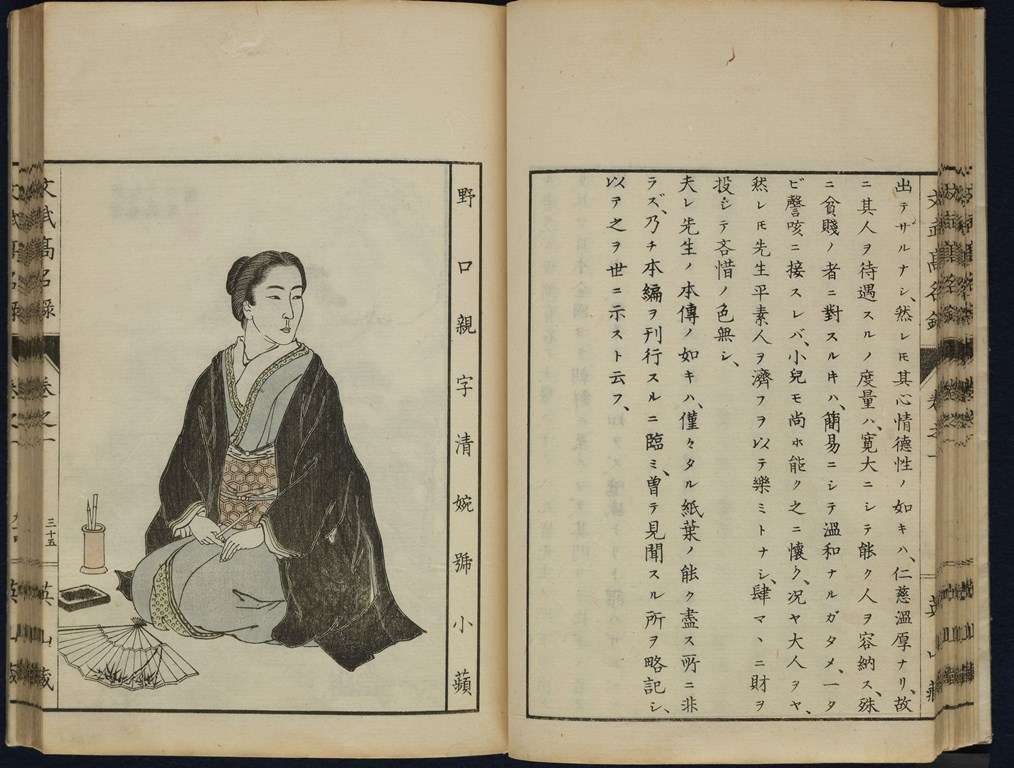 出テザルナシ、然レ𪜈其心情德性ノ如キハ、仁慈溫厚ナリ、故
ニ其人ヲ待遇スルノ度量ハ、寛大ニシテ能ク人ヲ容納ス、殊
ニ貧賤ノ者ニ對スルキハ、簡易ニシテ溫和ナルガタメ、一タ
ビ謦咳ニ接スレバ、小兒モ尚ホ能ク之ニ懷ク、况ヤ大人ヲヤ、
然レ𪜈先生平素人ヲ濟フヲ以テ樂ミトナシ、肆マヽニ財ヲ
投シテ吝惜ノ色無シ、
夫レ先生ノ本傳ノ如キハ、僅々タル紙葉ノ能ク盡ス所ニ非
ラズ、乃チ本編ヲ刊行スルニ臨ミ、曽テ見聞スル所ヲ略記シ、
以テ之ヲ世ニ示スト云フ、
野口親字清婉號小蘋
文武高名録
卷之一
三十五
英山藏